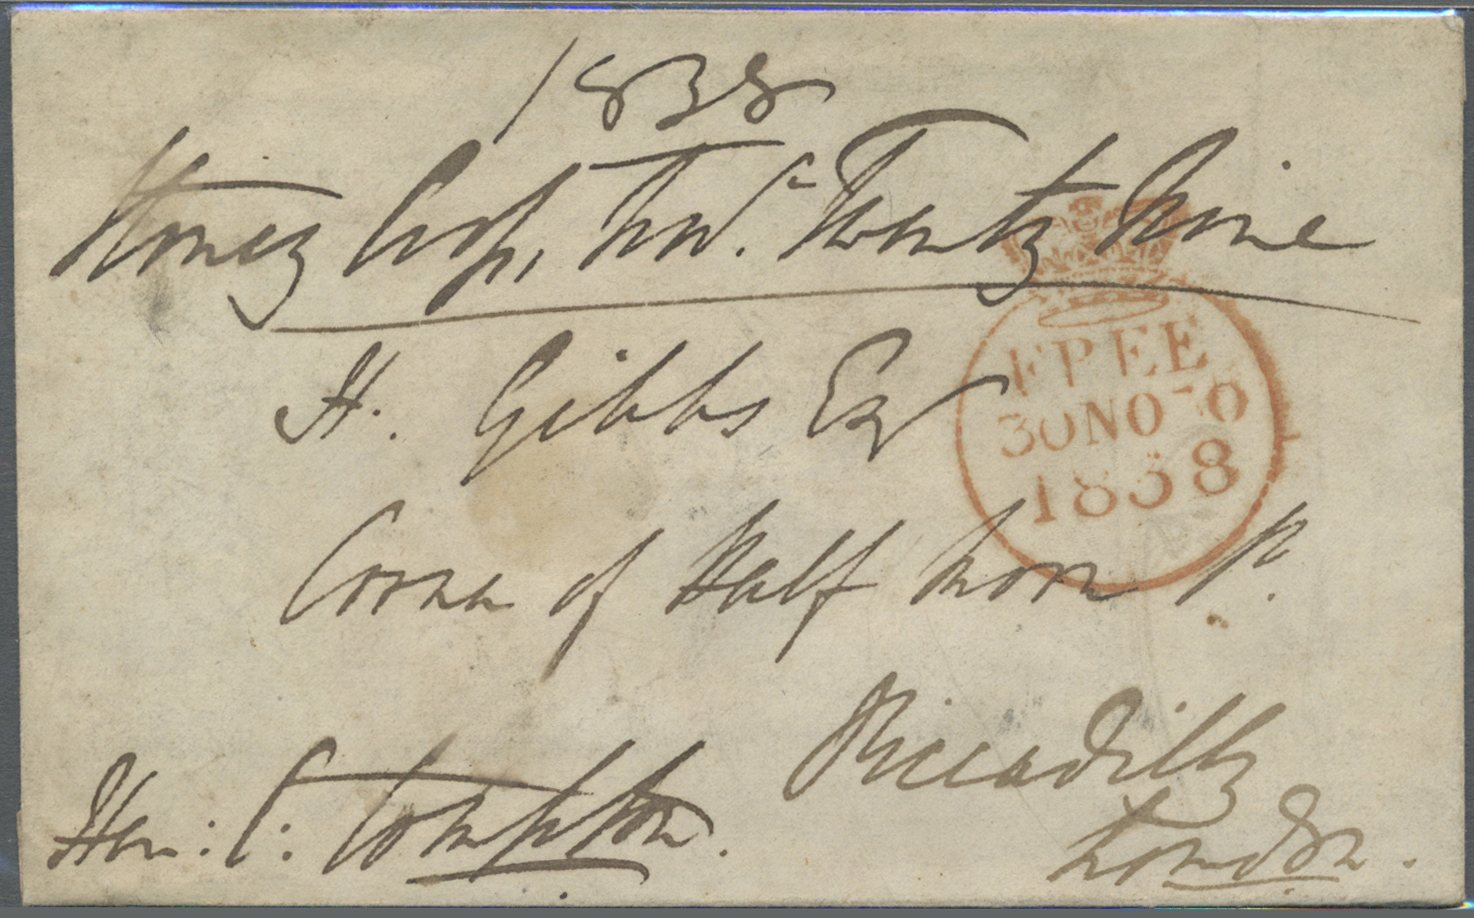 1838
Stoney Cross, Nov.r Twenty Nine
H. Gibbs Esqr
Corner of Half Moon St.
Piccadilly
London.
Hen: C: Compton.
FREE
30 NO 30
1838